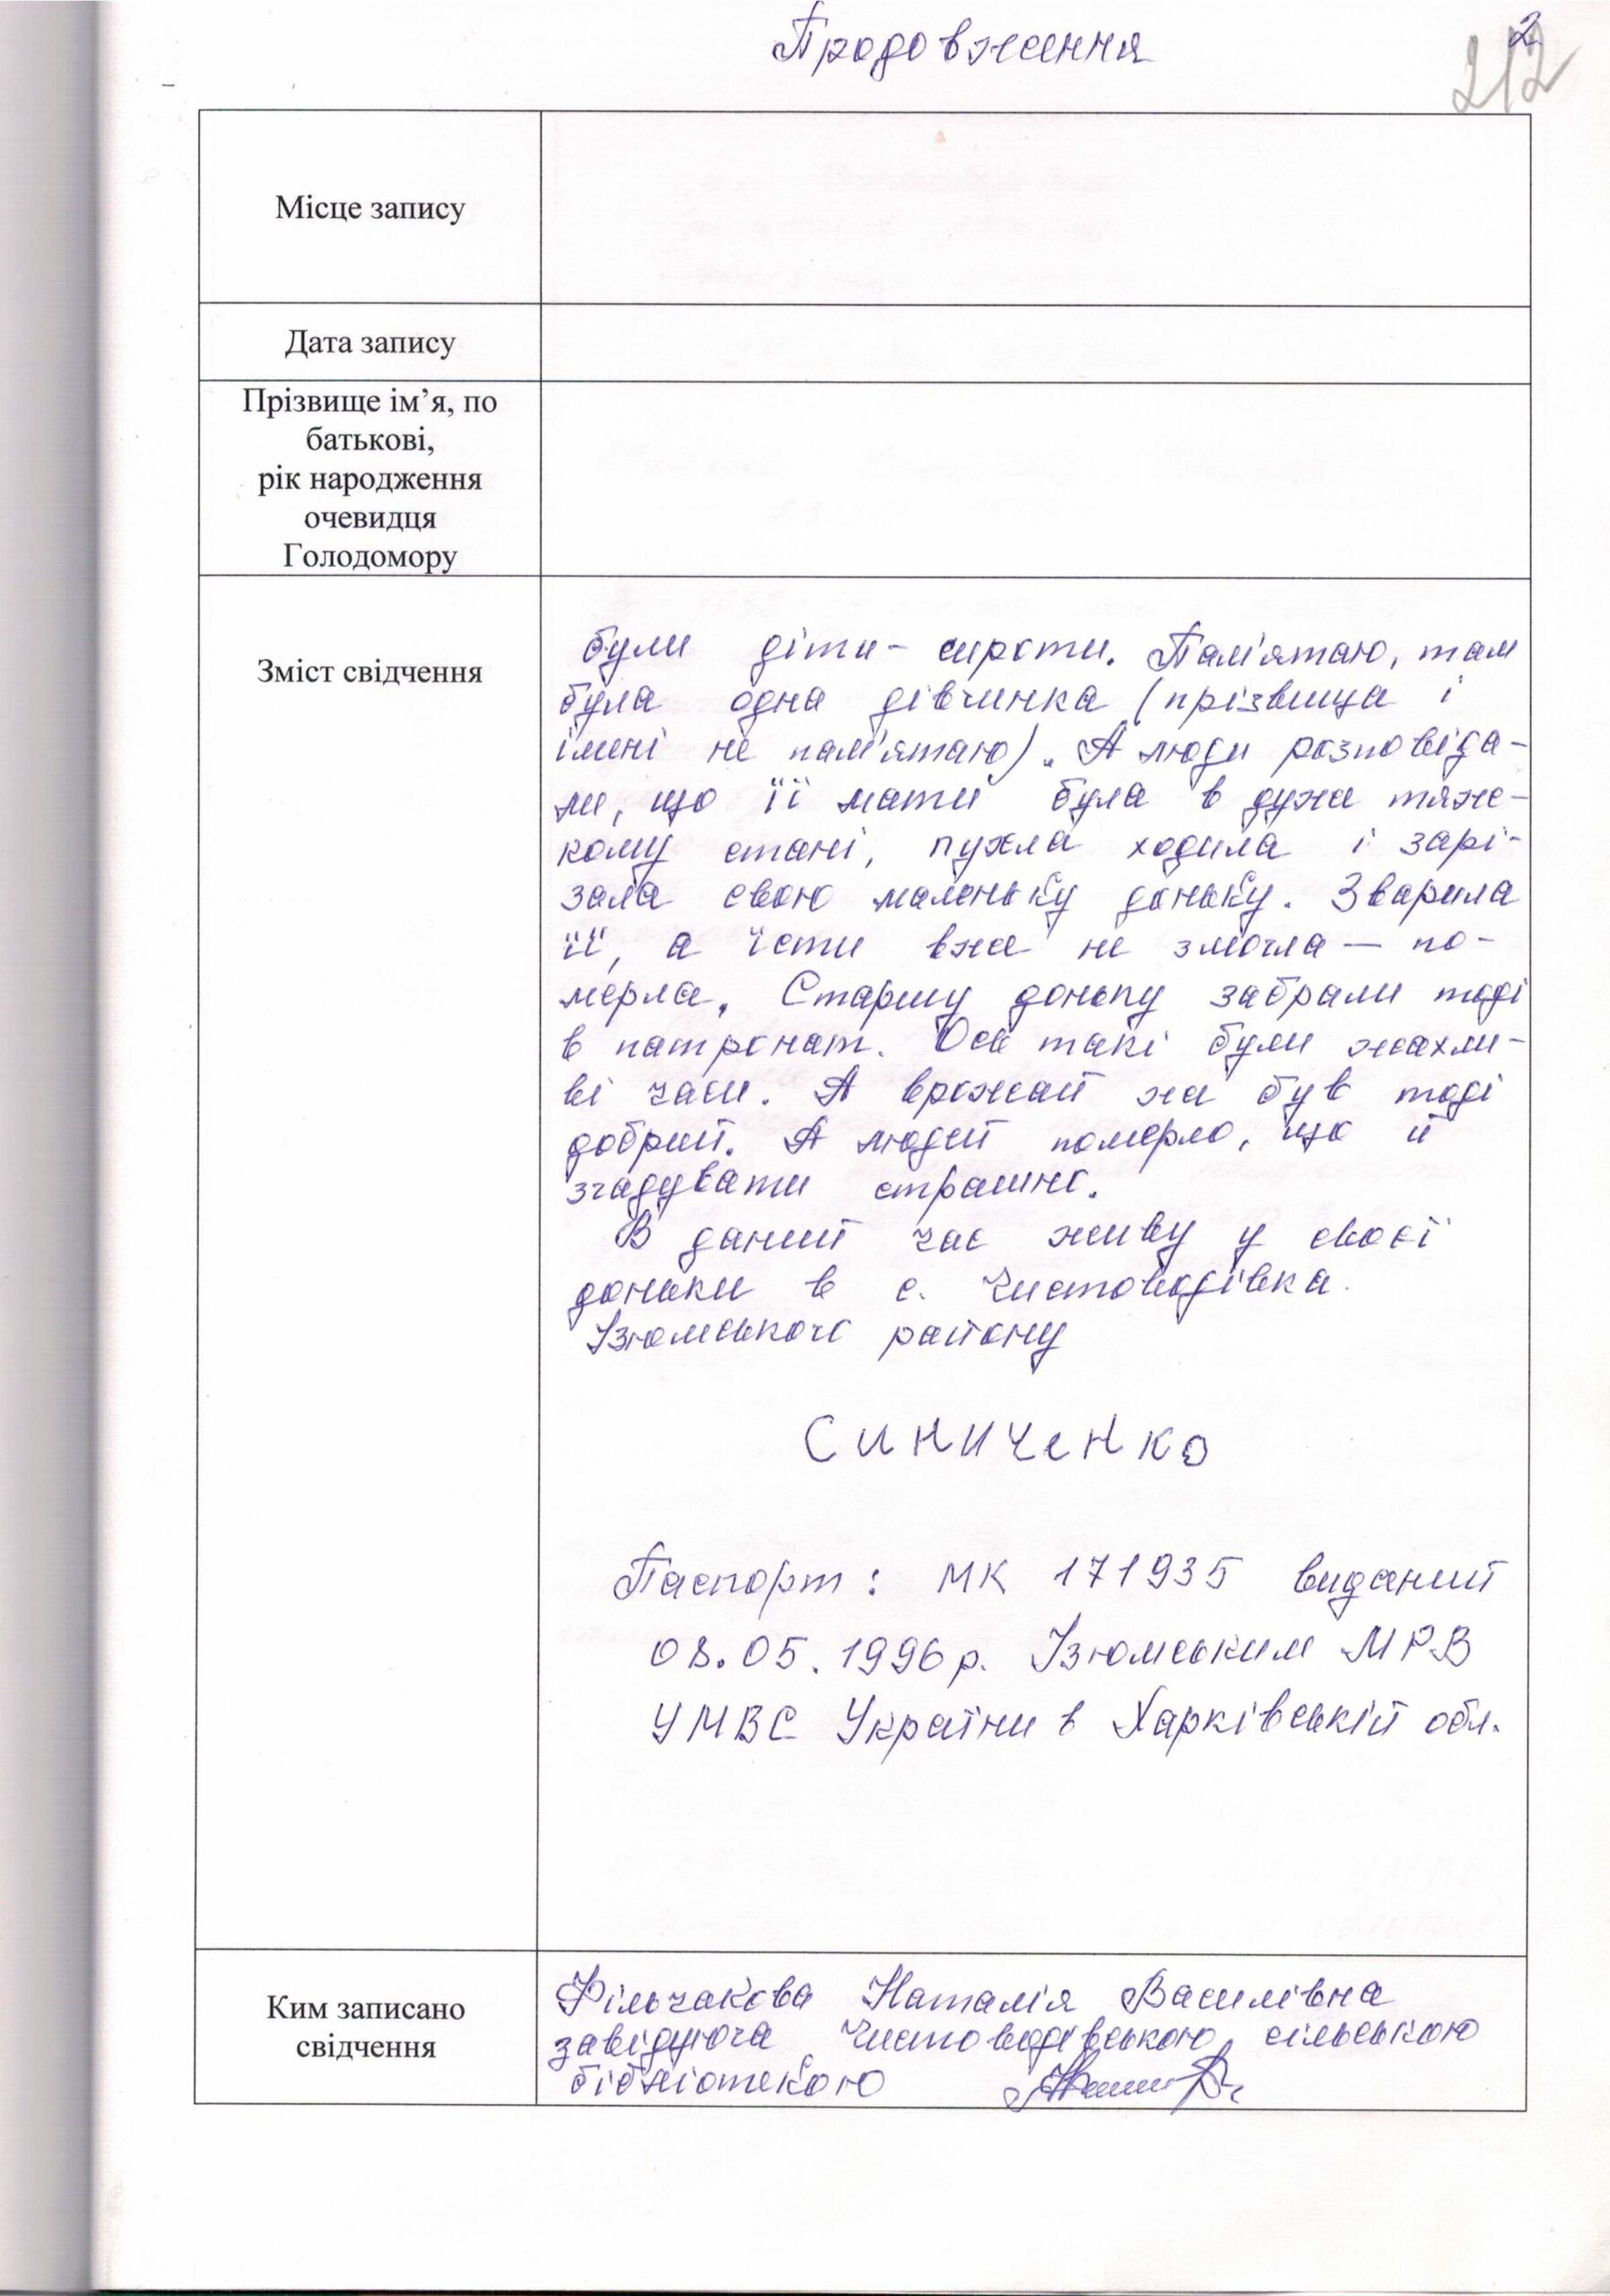 Продовження
2
212
Місце запису
Дата запису
Прізвище ім’я, по
батькові,
рік народження
очевидця
Голодомору
Зміст свідчення
були діти- сироти. Пам'ятаю, там
була одна дівчинка (прізвища і
імені не пам'ятаю). А люди розповіда-
ли, що її мати була в дуже тяже-
кому стані, пухла ходила і зарі-
зала свою маленьку доньку. Зварила
її, а їсти вже не змогла — по-
мерла. Старшу доньку забрали тоді
в патронат. Ось такі були жахли-
ві часи. А врожай же був тоді
добрий. А людей померло, що й
згадувати страшно.
В даний час живу у своєї
доньки в с. Чистоводівка.
Ізюмського району
Синиченко
Паспорт: МК 171935 виданий
08.05.1996р. Ізюмським МРВ
УМВС України в Харківській обл.
Ким записано
свідчення
Фільчакова Наталія Василівна
завідуюча Чистоводівською сільською
бібліотекою